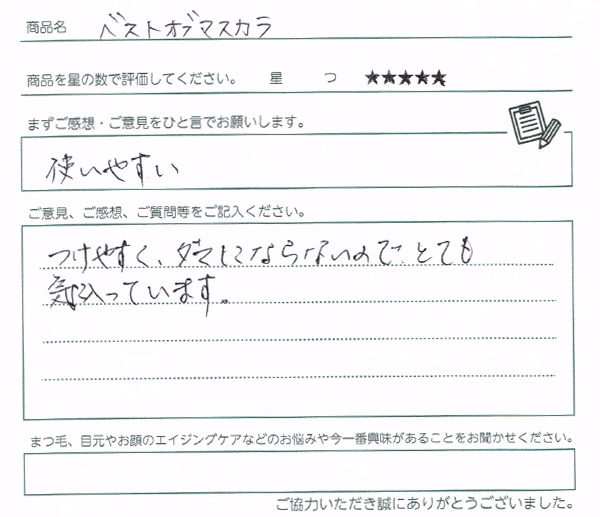 商品名 ベストオブマスカラ
商品を星の数で評価してください。 星 つ ★★★★★
まずご感想・ご意見をひと言でお願いします。
使いやすい
ご意見、ご感想、ご質問等をご記入ください。
つけやすく、ダマにならないので、とても
気に入っています。
まつ毛、目元やお顔のエイジングケアなどのお悩みや今一番興味があることをお聞かせください。
ご協力いただき誠にありがとうございました。